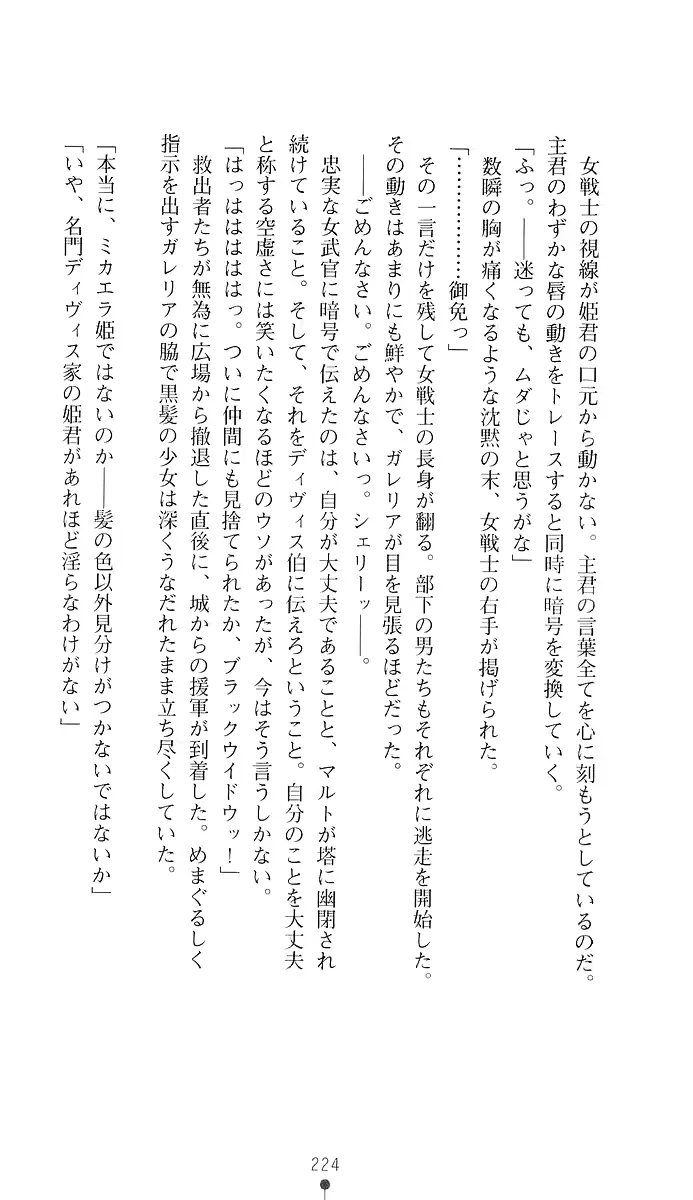 女戦士の視線が姫君の口元から動かない。主君の言葉全てを心に刻もうとしているのだ。
主君のわずかな唇の動きをトレースすると同時に暗号を変換していく。
「ふっ。――迷っても、ムダじゃと思うがな」
　数瞬の胸が痛くなるような沈黙の末、女戦士の右手が掲げられた。
「………………御免っ」
　その一言だけを残して女戦士の長身が翻る。部下の男たちもそれぞれに逃走を開始した。
その動きはあまりにも鮮やかで、ガレリアが目を見張るほどだった。
　――ごめんなさい。ごめんなさいっ。シェリーッ――。
　忠実な女武官に暗号で伝えたのは、自分が大丈夫であることと、マルトが塔に幽閉され
続けていること。そして、それをディヴィス伯に伝えろということ。自分のことを大丈夫
と称する空虚さには笑いたくなるほどのウソがあったが、今はそう言うしかない。
「はっはははははっ。ついに仲間にも見捨てられたか、ブラックウイドウッ！」
　救出者たちが無為に広場から撤退した直後に、城からの援軍が到着した。めまぐるしく
指示を出すガレリアの脇で黒髪の少女は深くうなだれたまま立ち尽くしていた。
「本当に、ミカエラ姫ではないのか――髪の色以外見分けがつかないではないか」
「いや、名門ディヴィス家の姫君があれほど淫らなわけがない」
224